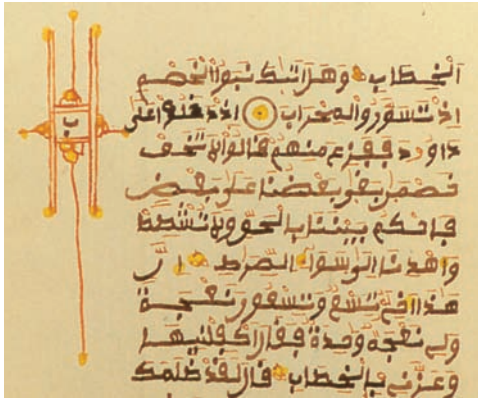 ب
الخطاب وهل اتيك نبؤا الخصم
اذ تسوروا المحراب اذ دخلوا على
داود ففزع منهم قالوا لا تخف
خصمن بغى بعضنا على بعض
فاحكم بيننا بالحق ولا تشطط
واهدنا الى سوا الصرط ان
هذا اخي تسع وتسعون نعجة
ولي نعجة وحدة فقال اكفلنيها
وعزني في الخطاب قال لقد ظلمك